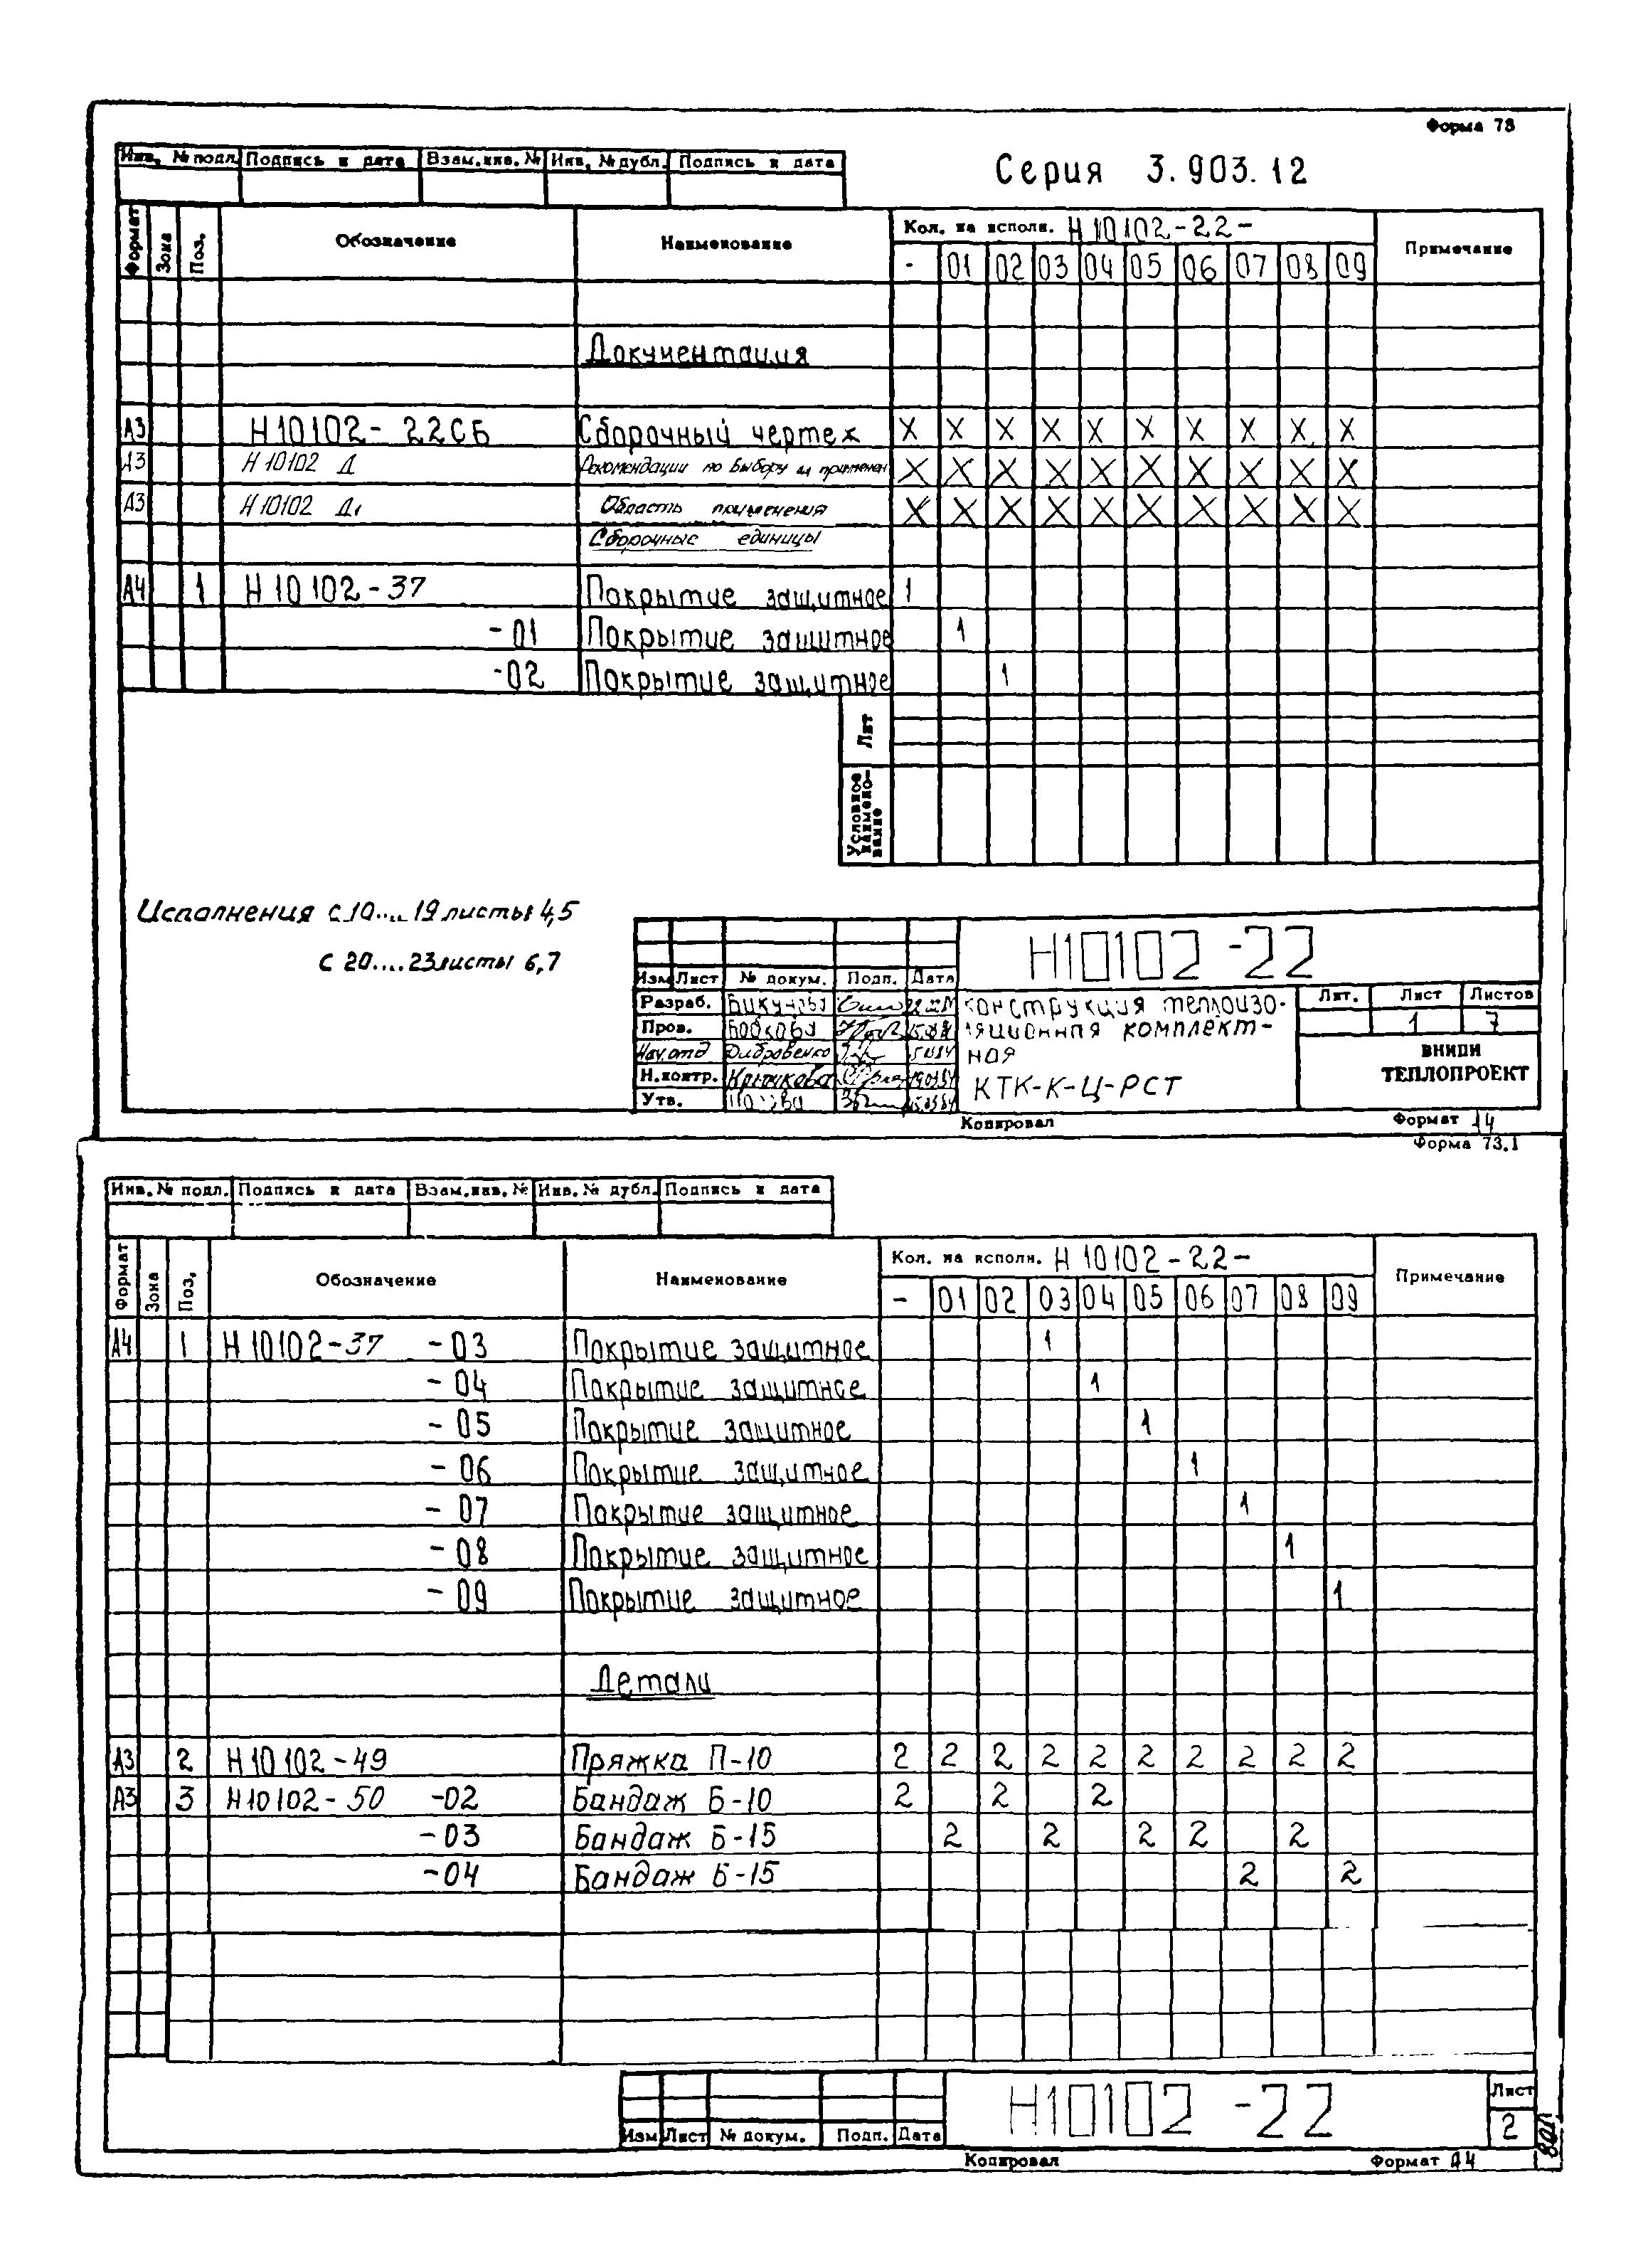 Форма 73
Инв. № подл. Подпись и дата Взам. инв. № Инв. № дубл. Подпись и дата
Серия 3.903.12
Формат Зона Поз. Обозначение Наименование Кол. на исполн. Н10102-22- Примечание
- 01 02 03 04 05 06 07 08 09
Документация
А3 Н10102-22СБ Сборочный чертеж X X X X X X X X X X
А3 Н10102 Д Рекомендации по выбору и применен X X X X X X X X X X
А3 Н10102 Д1 Область применения X X X X X X X X X X
Сборочные единицы
А4 1 Н10102-37 Покрытие защитное 1
-01 Покрытие защитное 1
-02 Покрытие защитное 1
Лит
Условное наимено-вание
Исполнения с 10.... 19 листы 4,5
с 20.... 23 листы 6,7
Изм Лист № докум. Подп. Дата
Н10102-22
Разраб.
Пров. Бобкова
Нач. отд
Н.контр. Крючкова
Утв.
Конструкция теплоизо-
ляционная комплект-
ная
КТК-К-Ц-РСТ
Лит. Лист Листов
1 7
ВНИПИ
ТЕПЛОПРОЕКТ
Копировал Формат А4
Форма 73.1
Инв. № подл. Подпись и дата Взам. инв. № Инв. № дубл. Подпись и дата
Формат Зона Поз. Обозначение Наименование Кол. на исполн. Н10102-22- Примечание
- 01 02 03 04 05 06 07 08 09
А4 1 Н10102-37 -03 Покрытие защитное 1
-04 Покрытие защитное 1
-05 Покрытие защитное 1
-06 Покрытие защитное 1
-07 Покрытие защитное 1
-08 Покрытие защитное 1
-09 Покрытие защитное 1
Детали
А3 2 Н10102-49 Пряжка П-10 2 2 2 2 2 2 2 2 2 2
А3 3 Н10102-50 -02 Бандаж Б-10 2 2 2
-03 Бандаж Б-15 2 2 2 2 2
-04 Бандаж Б-15 2 2
Изм Лист № докум. Подп. Дата
Н10102-22
Лист
2
Копировал Формат А4